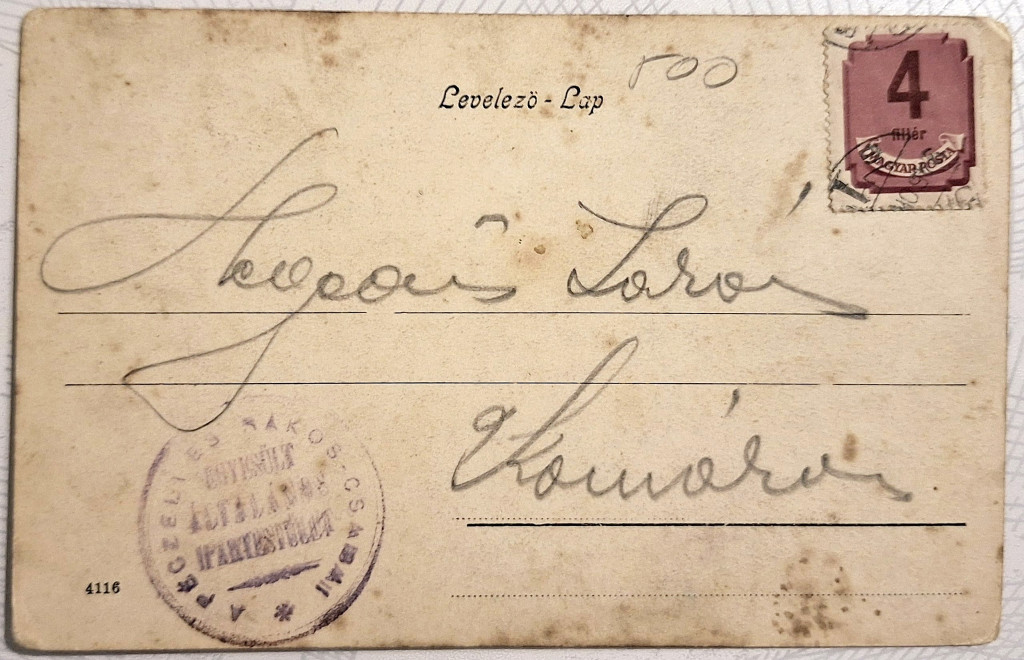 500
Levelező - Lap
4
fillér
MAGYAR POSTA
Komárom
A PÉCZELI ÉS RÁKOS-CSABAI
EGYESÜLT
ÁLTALÁNOS
IPARTESTÜLET
4116